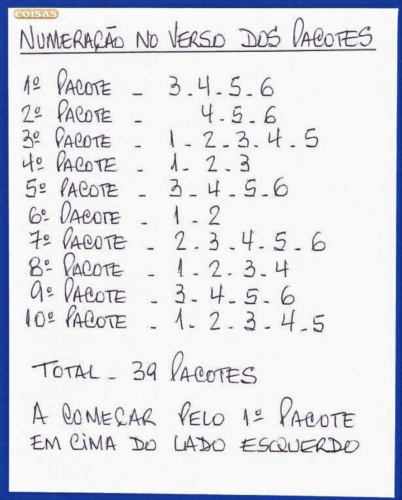 COISAS
NUMERAÇÃO NO VERSO DOS PACOTES
1º PACOTE - 3.4.5.6
2º PACOTE - 4.5.6
3º PACOTE - 1-2.3.4.5
4º PACOTE - 1-2.3
5º PACOTE - 3-4.5.6
6º PACOTE - 1-2
7º PACOTE - 2.3.4.5.6
8º PACOTE - 1-2.3.4
9º PACOTE - 3-4.5.6
10º PACOTE - 1.2-3.4.5
TOTAL - 39 PACOTES
A COMEÇAR PELO 1º PACOTE
EM CIMA DO LADO ESQUERDO